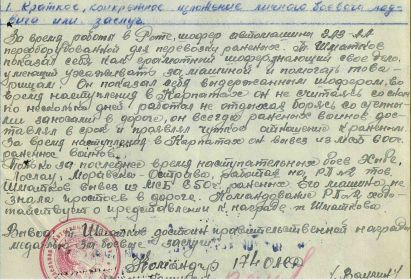 1. Краткое, конкретное изложение личного боевого под-
вига или заслуг.
За время работы в Роте, шофер автомашины ГАЗ-АА
переоборудованной для перевозки раненых т. Шматков
показал себя как грамотный шофер знающий свое дело,
умеющий ухаживать за машиной и помогать това-
рищам. Он показал себя выдержанным шофером, во
время наступления в Карпатах он не считаясь со сном
по несколько дней работал не отдыхая борясь со снежны-
ми заносами в дороге, он всегда раненых воинов дос-
тавлял в срок и проявлял чуткое отношение к раненым
За время наступления в Карпатах он вывез из МСБ 600
раненых воинов.
за последнее время наступательных боев
Моравска-Острава, работая на РП№2 тов.
Шматков вывез из МСБ раненых его машина не
знала простоев в дороге. Командование РП№2 хода-
тайствует о представлении к награде т. Шматкова
Вывод: Шматков достоин правительственной награды
медалью "За боевые заслуги"
Командир